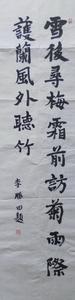 雪後尋梅霜前訪菊雨際
護蘭風外聽竹
李勝田題